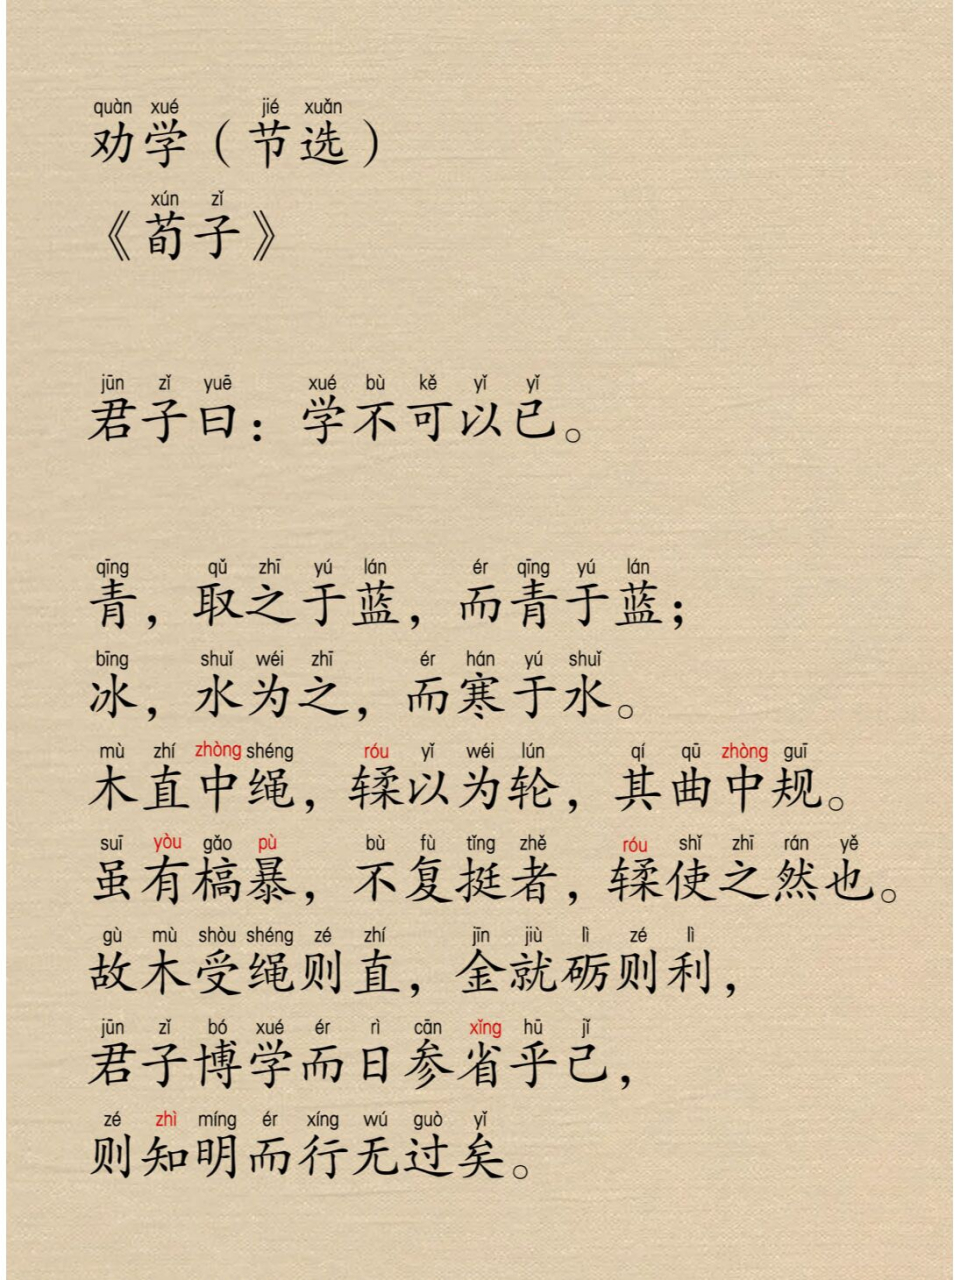 quàn xué jié xuǎn
劝学（节选）
xún zǐ
《荀子》
jūn zǐ yuē xué bù kě yǐ yǐ
君子曰：学不可以已。
qīng qǔ zhī yú lán ér qīng yú lán
青，取之于蓝，而青于蓝；
bīng shuǐ wéi zhī ér hán yú shuǐ
冰，水为之，而寒于水。
mù zhí zhòng shéng róu yǐ wéi lún qí qū zhòng guī
木直中绳，𫐓以为轮，其曲中规。
suī yòu gǎo pù bù fù tǐng zhě róu shǐ zhī rán yě
虽有槁暴，不复挺者，𫐓使之然也。
gù mù shòu shéng zé zhí jīn jiù lì zé lì
故木受绳则直，金就砺则利，
jūn zǐ bó xué ér rì cān xǐng hū jǐ
君子博学而日参省乎己，
zé zhì míng ér xíng wú guò yǐ
则知明而行无过矣。